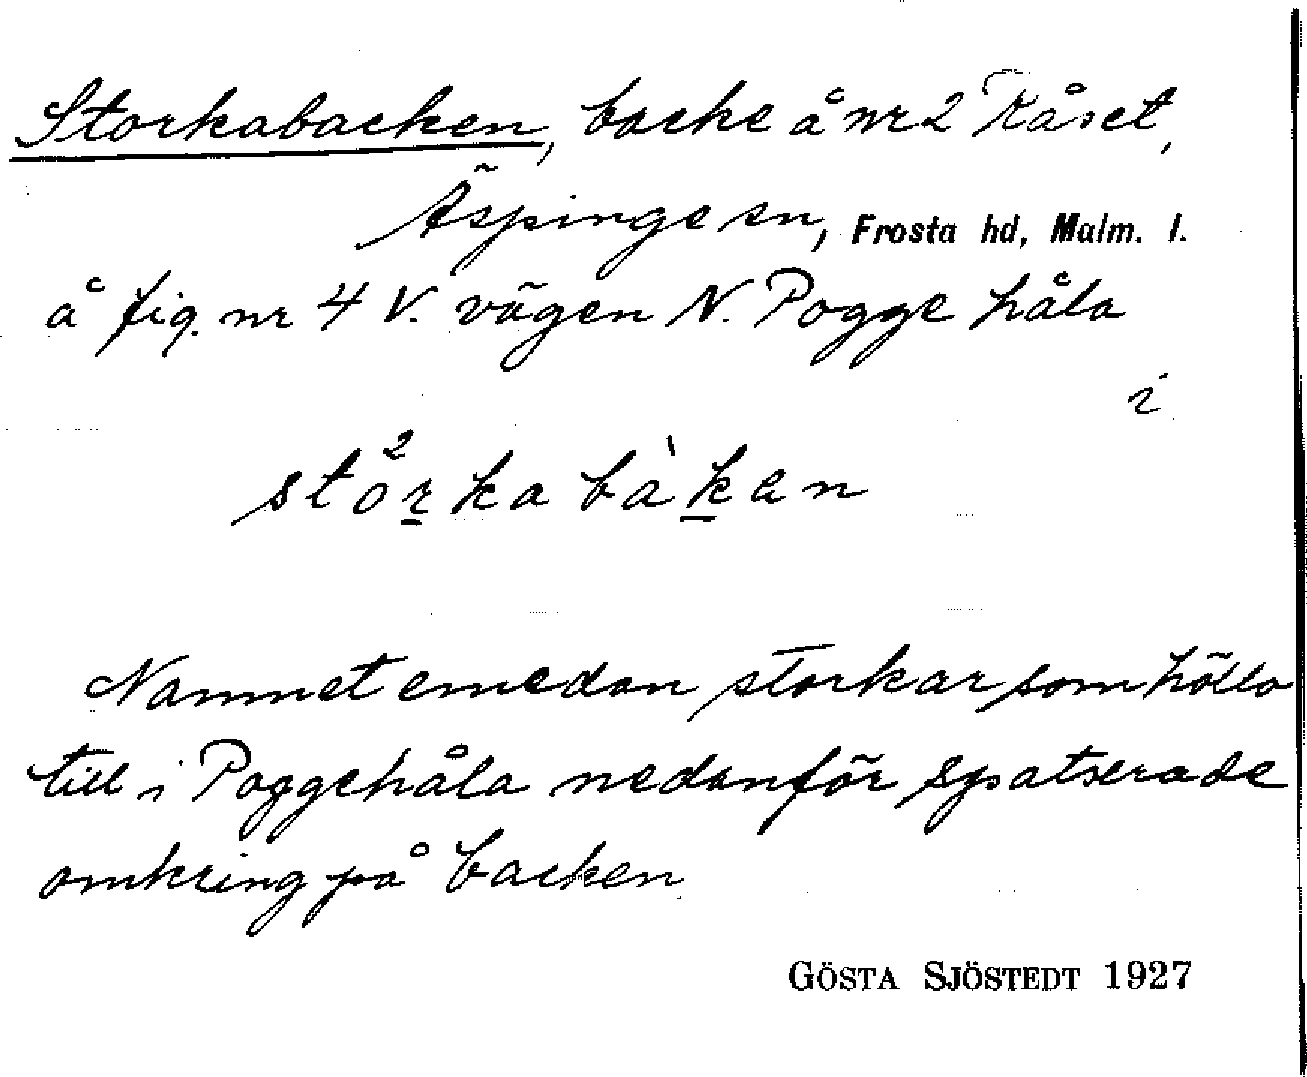 Storkabacken, backe å nr 2 Råset,
Äspinge sn, Frosta hd, Malm. l.
å fig. nr 4 V. vägen N. Pogge håla
i
stårkabàkan
Namnet emedan storkar som höllo
till i Poggehåla nedanför spatserade
omkring på backen
GÖSTA SJÖSTEDT 1927